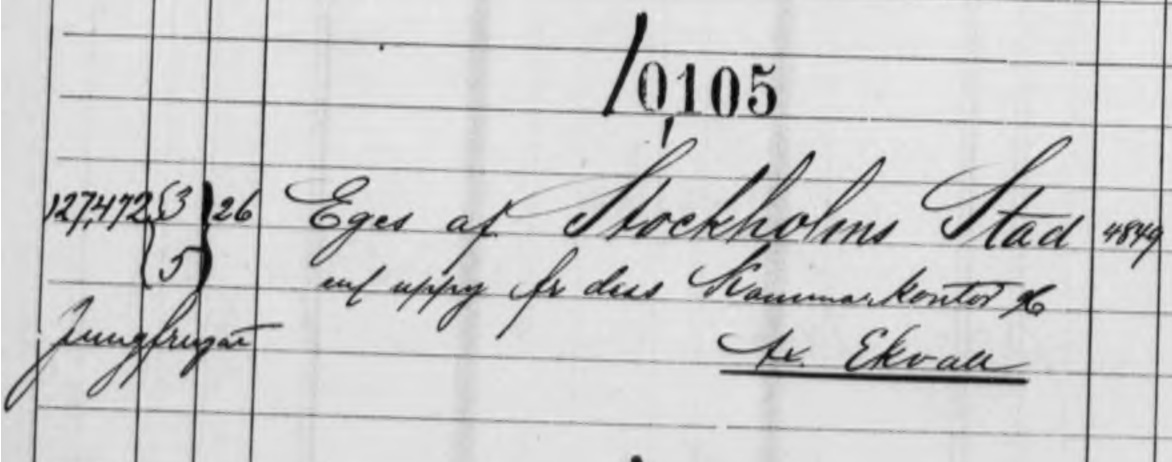 /0105
127,472 {3 } 26 Eges af Stockholms Stad 4849
{5 } enl uppg fr dess Kammarkontor
Jungfrugat Ekvall